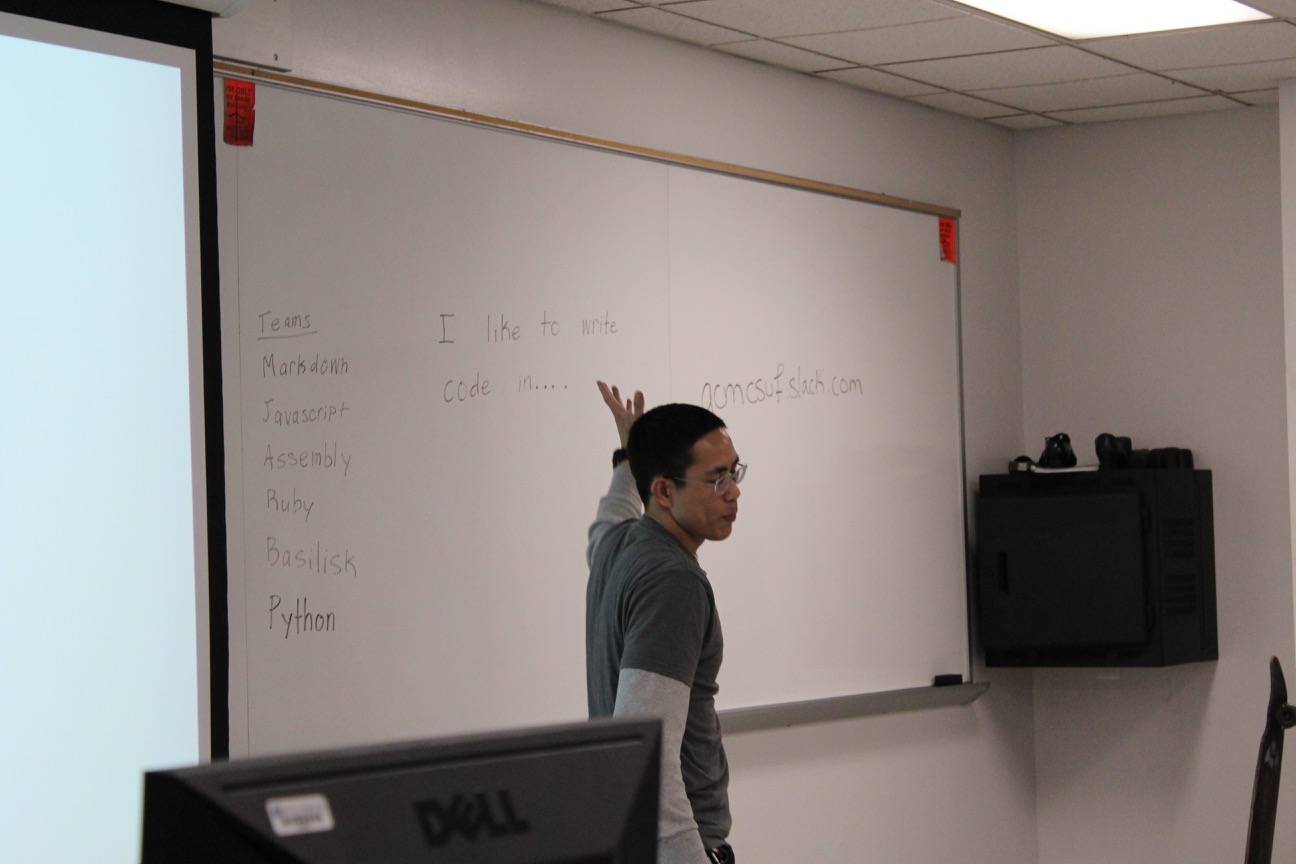 Teams
Markdown
Javascript
Assembly
Ruby
Basilisk
Python
I like to write
code in....
acmcsuf.slack.com
DELL